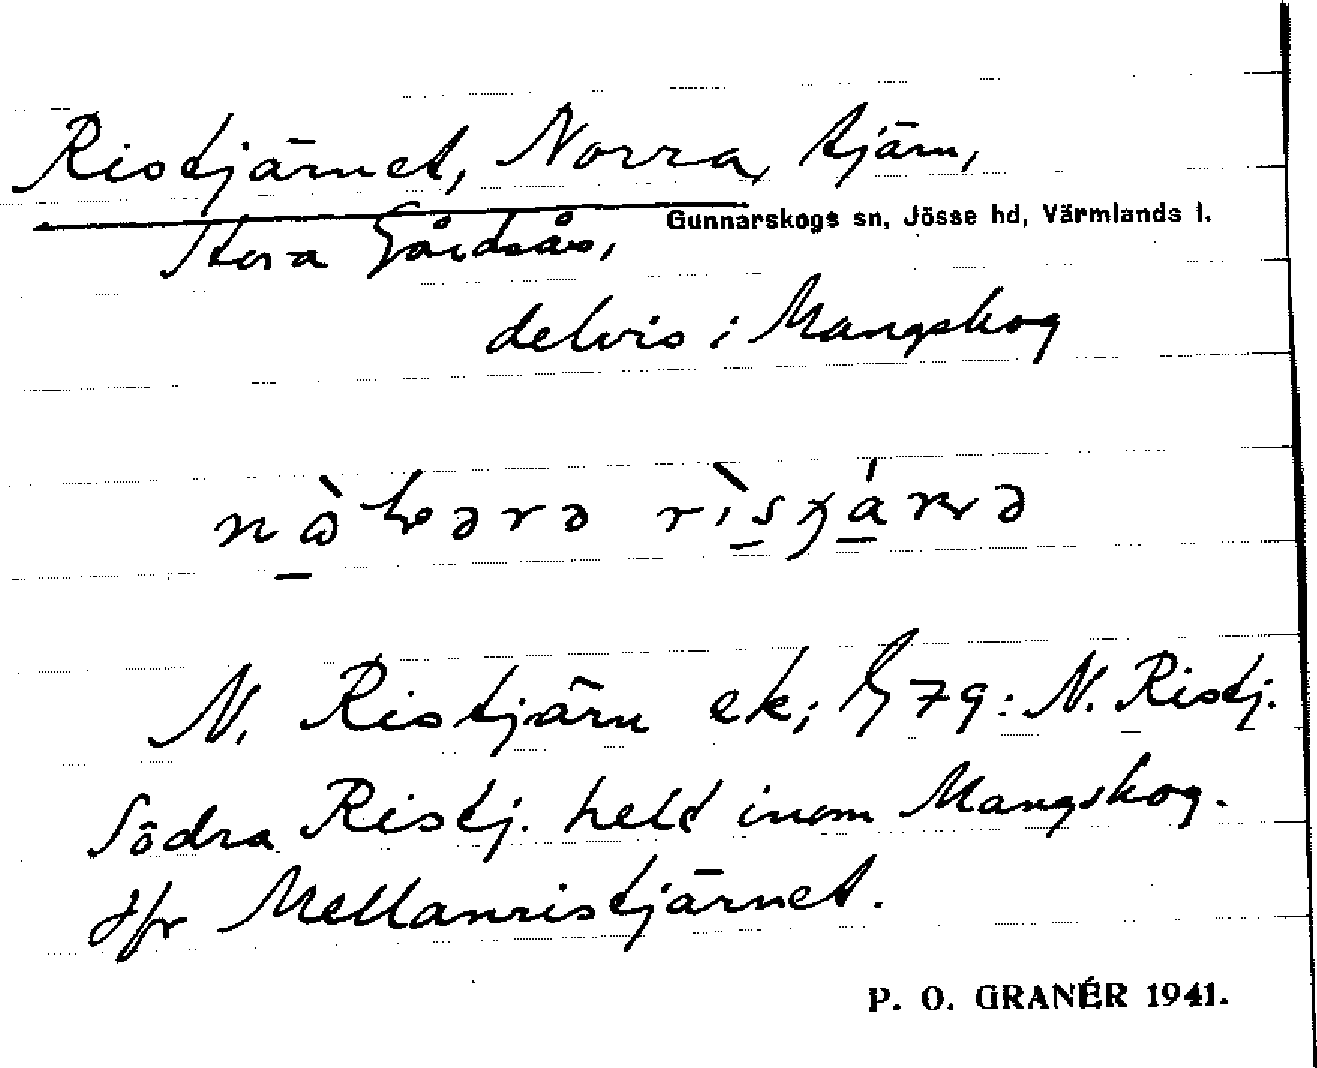 Ristjärnet, Norra, tjärn,
Gunnarskogs sn, Jösse hd, Värmlands l.
Stora Gårdsås,
delvis i Mangskog
N. Ristjärn ek; G 79: N. Ristj.
Södra Ristj. helt inom Mangskog.
Jfr Mellanristjärnet.
P. O. GRANÉR 1941.